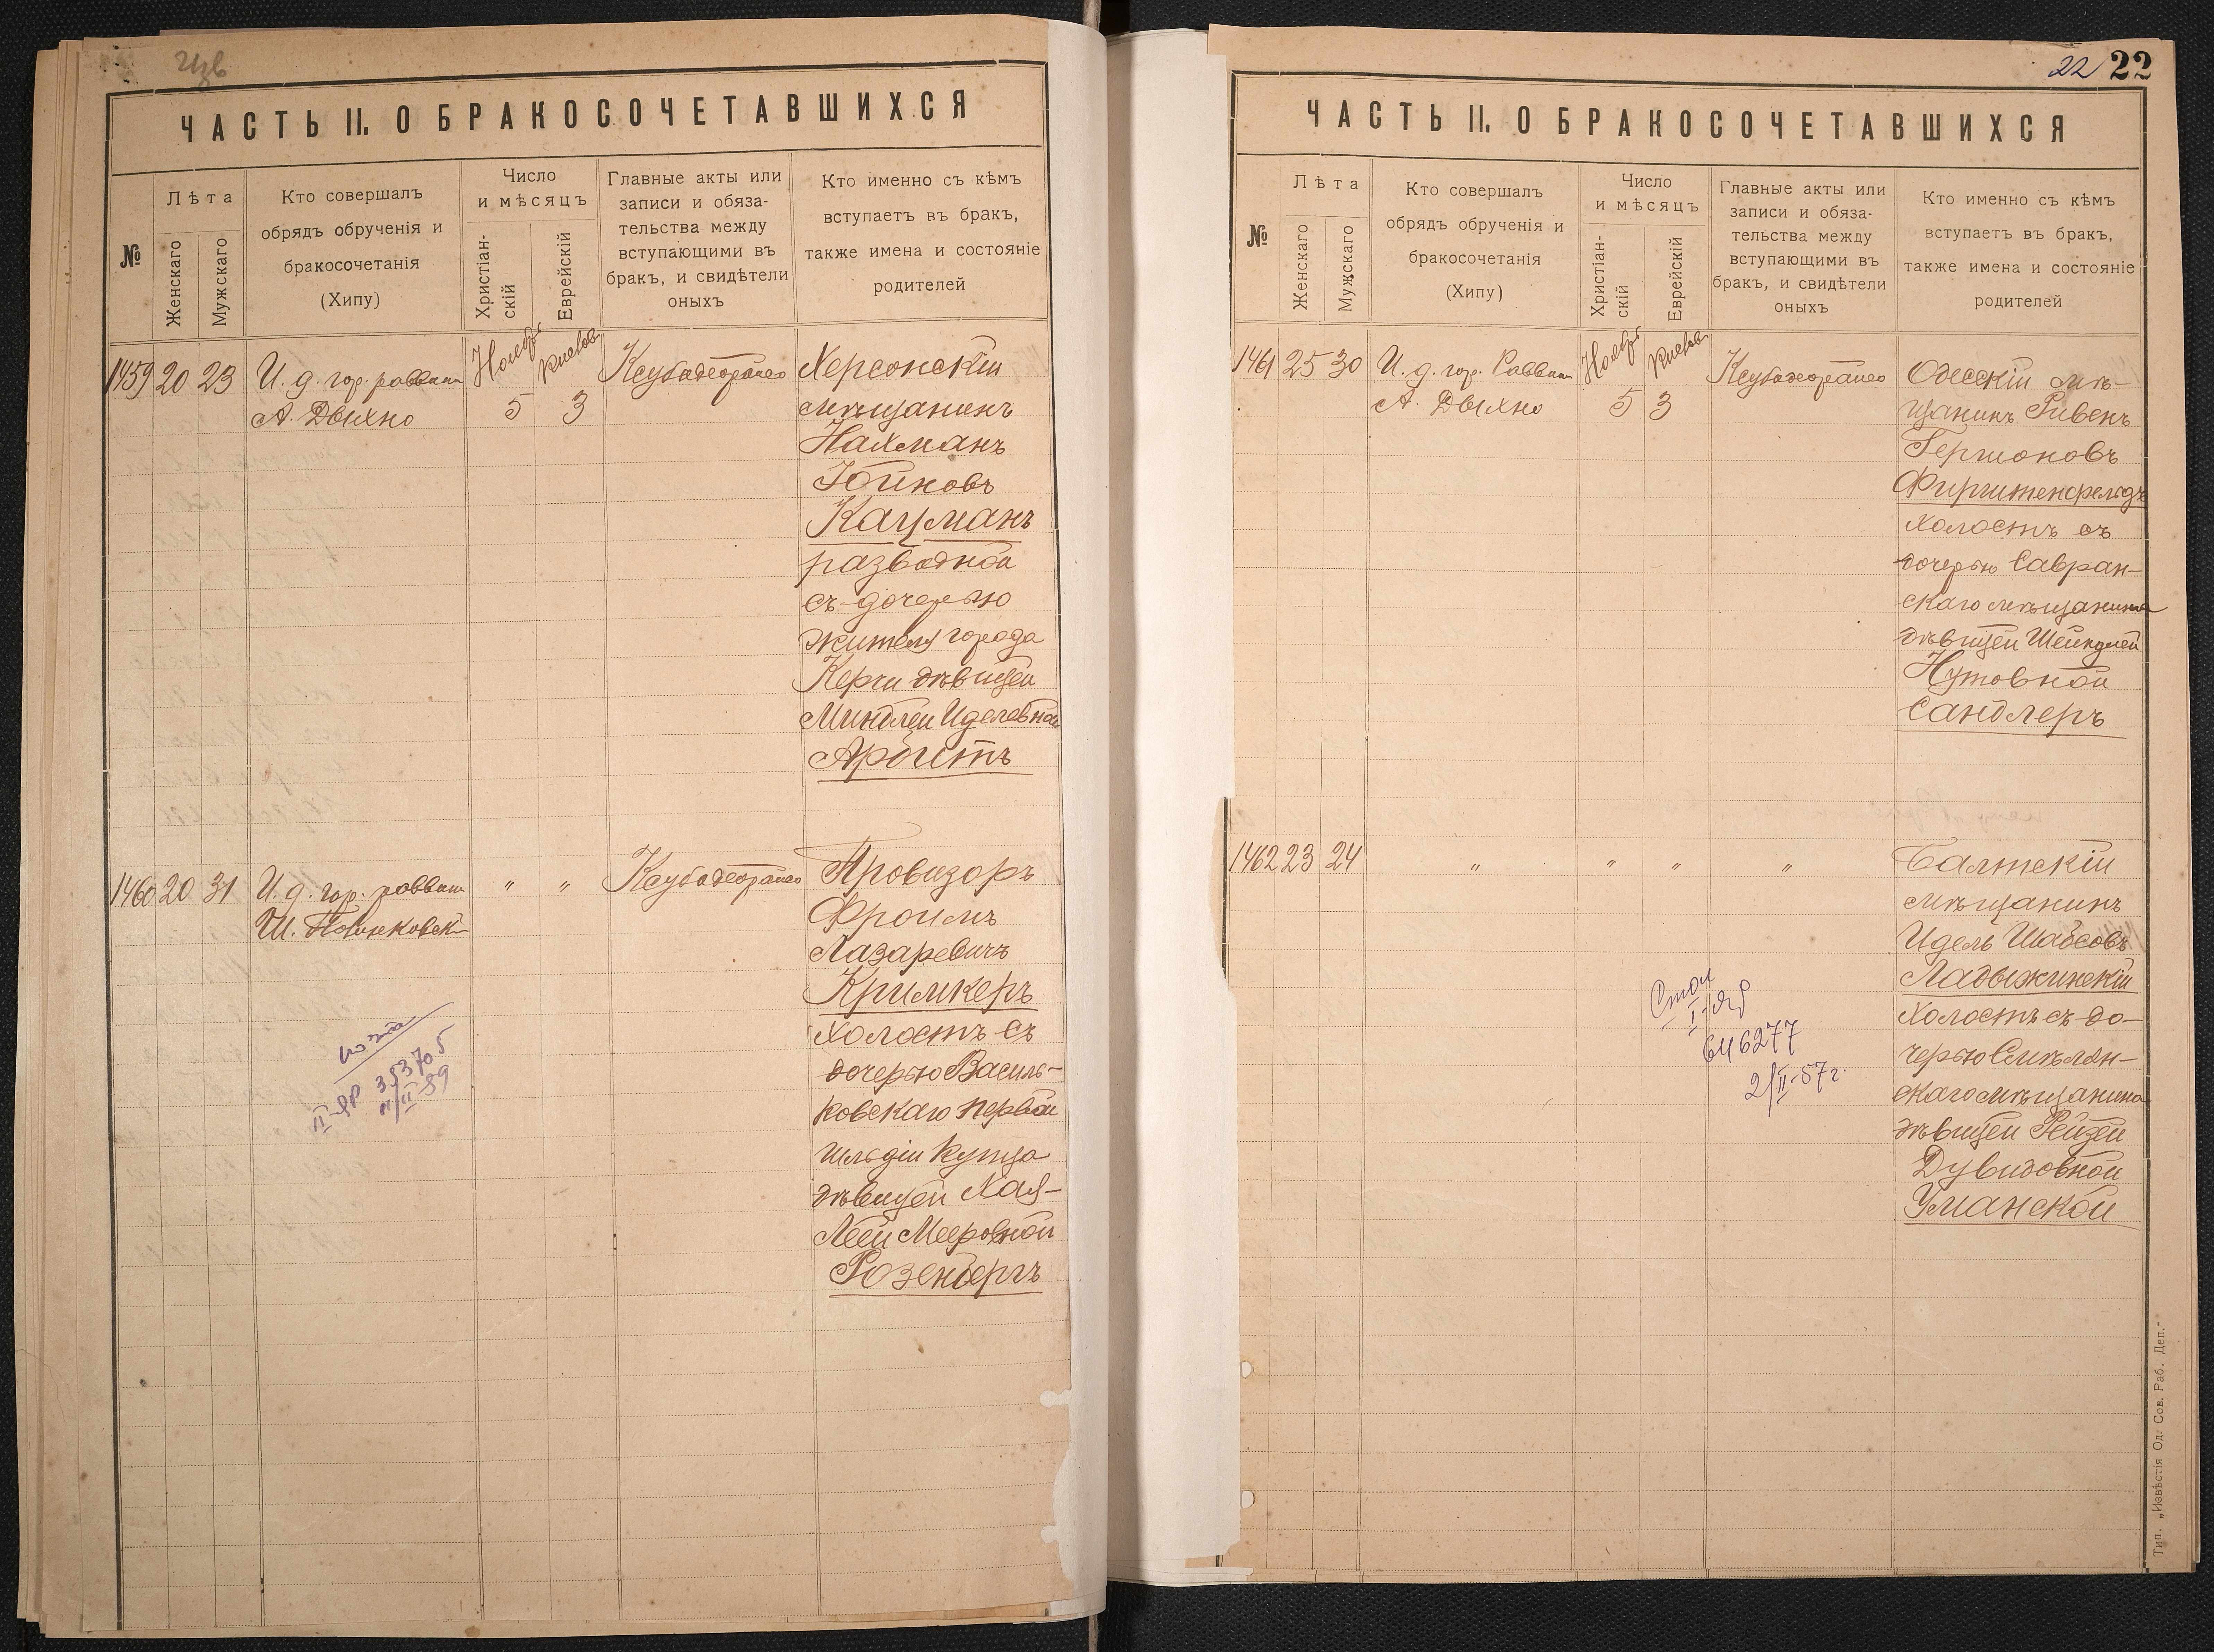 ЧАСТЬ II. О БРАКОСОЧЕТАВШИХСЯ
№
Лѣта
Женскаго
Мужскаго
Кто совершалъ
обрядъ обрученія и
бракосочетанія
(Хипу)
Число
и мѣсяцъ
Христіан-
скій
Еврейскій
Главные акты или
записи и обяза-
тельства между
вступающими въ
бракъ, и свидѣтели
оныхъ
Кто именно съ кѣмъ
вступаетъ въ бракъ,
также имена и состояніе
родителей
1459 20 23
И. д. гор. раввина
А. Дыхно
Ноябрь
5
Кислев
3
Херсонскій
мѣщанинъ
Нахманъ
Юйновъ
Кацманъ
разводной
съ дочерью
жителя города
Керчи дѣвицей
Миндлей Иделевной
Арбитъ
1460 20 31
И. д. гор. раввина
Ш.
" "
Провизоръ
Фроимъ
Лазаревичъ
Кримкеръ
холостъ съ
дочерью Василь-
ковскаго первой
гильдіи купца
дѣвицей Хая-
Леей Мееровной
Розенбергъ
353705
11/II-89
22 22
ЧАСТЬ II. О БРАКОСОЧЕТАВШИХСЯ
№
Лѣта
Женскаго
Мужскаго
Кто совершалъ
обрядъ обрученія и
бракосочетанія
(Хипу)
Число
и мѣсяцъ
Христіан-
скій
Еврейскій
Главные акты или
записи и обяза-
тельства между
вступающими въ
бракъ, и свидѣтели
оныхъ
Кто именно съ кѣмъ
вступаетъ въ бракъ,
также имена и состояніе
родителей
1461 25 30
И. д. гор. Раввина
А. Дыхно
Ноябрь
5
Кислев
3
Одесскій мѣ-
щанинъ Ривенъ
Гершоновъ
Фирштенфельдъ
холостъ съ
дочерью Савран-
скаго мѣщанина
дѣвицей Шейндлей
Нутовной
Сандлеръ
1462 23 24
" " " "
Балтскій
мѣщанинъ
Идель Шабсовъ
Ладыжинскій
холостъ съ до-
черью Смѣлян-
скаго мѣщанина
дѣвицей Рейзей
Дувидовной
Уманской
646277
2/II-57г.
Тип. „Извѣстія Од. Сов. Раб. Деп."